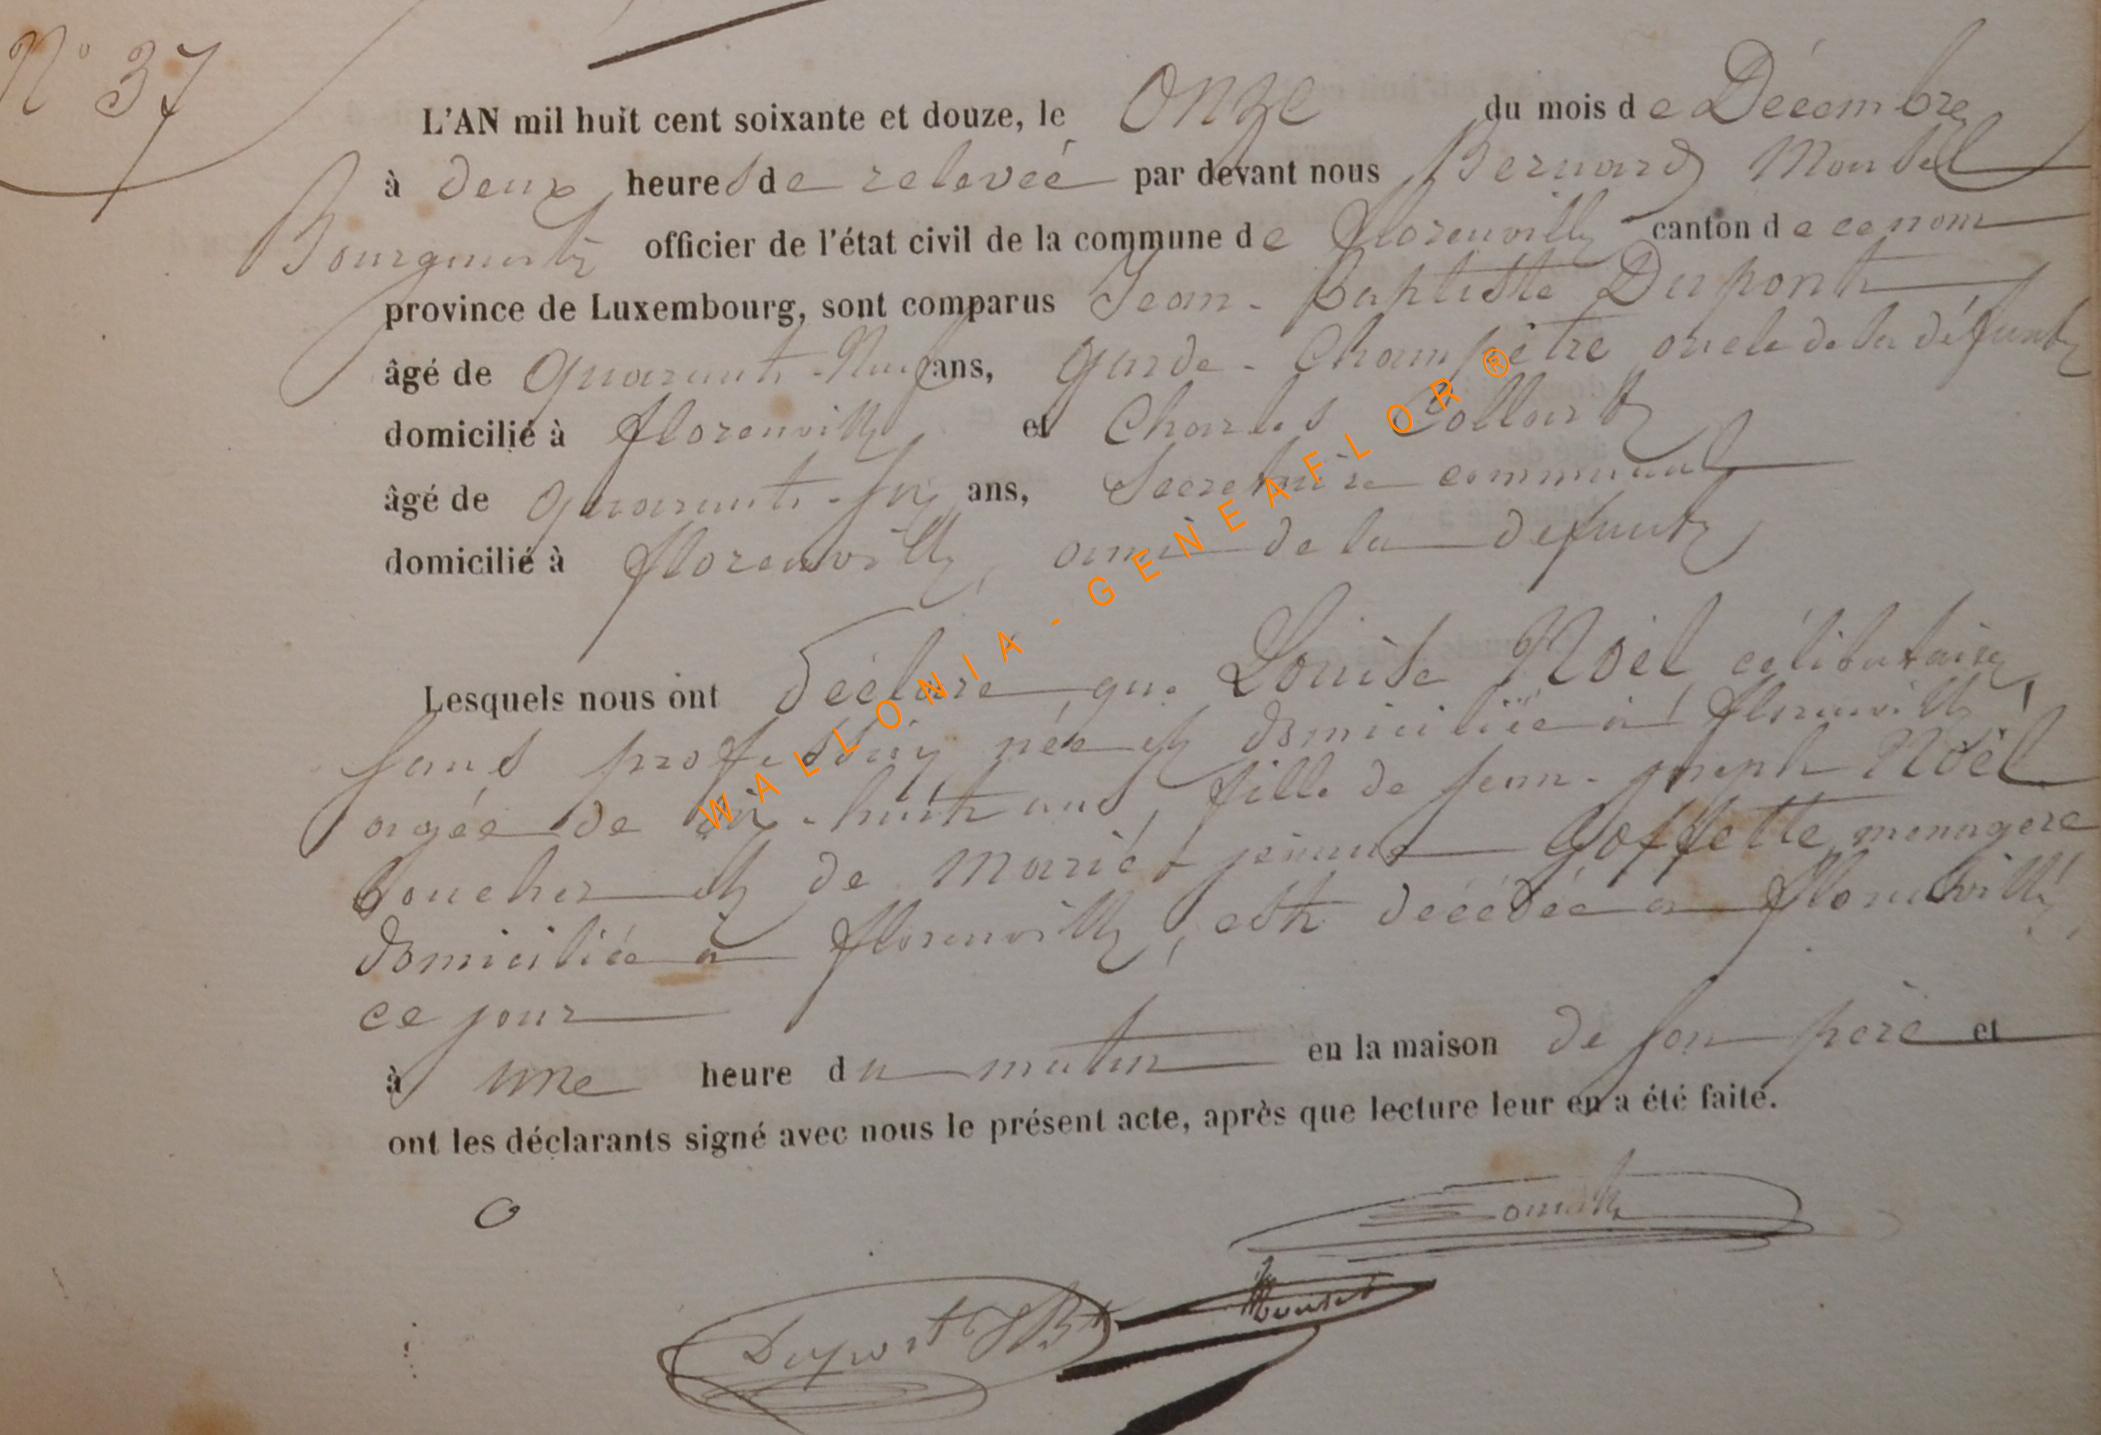 N° 37
L'AN mil huit cent soixante et douze, le Onze du mois de Décembre
à deux heures de relevée par devant nous Bernard
Bourgmestre officier de l'état civil de la commune de florenville canton de ce nom
province de Luxembourg, sont comparus Jean-Baptiste Dupont
âgé de quarante-Neuf ans, garde-Champêtre, oncle de la défunte
domicilié à florenville et Charles Collart
âgé de quarante-six ans, Secrétaire communal
domicilié à florenville, ami de la défunte,
Lesquels nous ont déclaré que Louise Noël célibataire,
sans profession née et domiciliée à florenville,
agée de dix-huit ans, fille de jean-joseph Noël
boucher et de Marie-jeanne Goffette, menagère
domiciliée à florenville, est décédée à florenville,
ce jour
à une heure du matin en la maison de son père et
ont les déclarants signé avec nous le présent acte, après que lecture leur en a été faite.
Dupont JBt
WALLONIA - GENEAFLOR ®